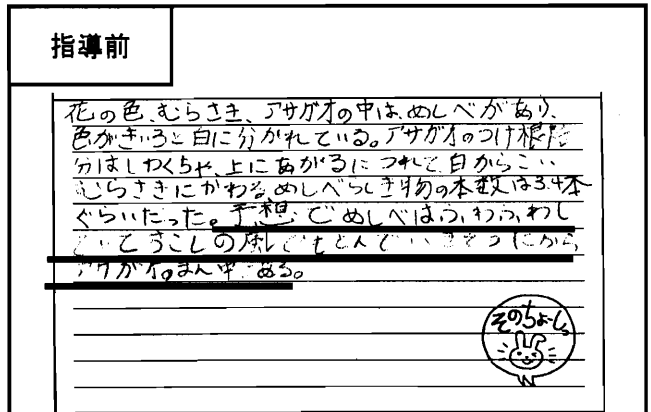 指導前
花の色、むらさき、アサガオの中は、めしべがあり、
色がきいろと白に分かれている。アサガオのつけ根部
分はしわくちゃ、上にあがるにつれて白からこい
むらさきにかわる。めしべらしき物の本数は3.4本
ぐらいだった。予想でめしべはふわふわし
ていてすこしの風でもとんでいきそうだから
アサガオのまん中である。
そのちょーしっ